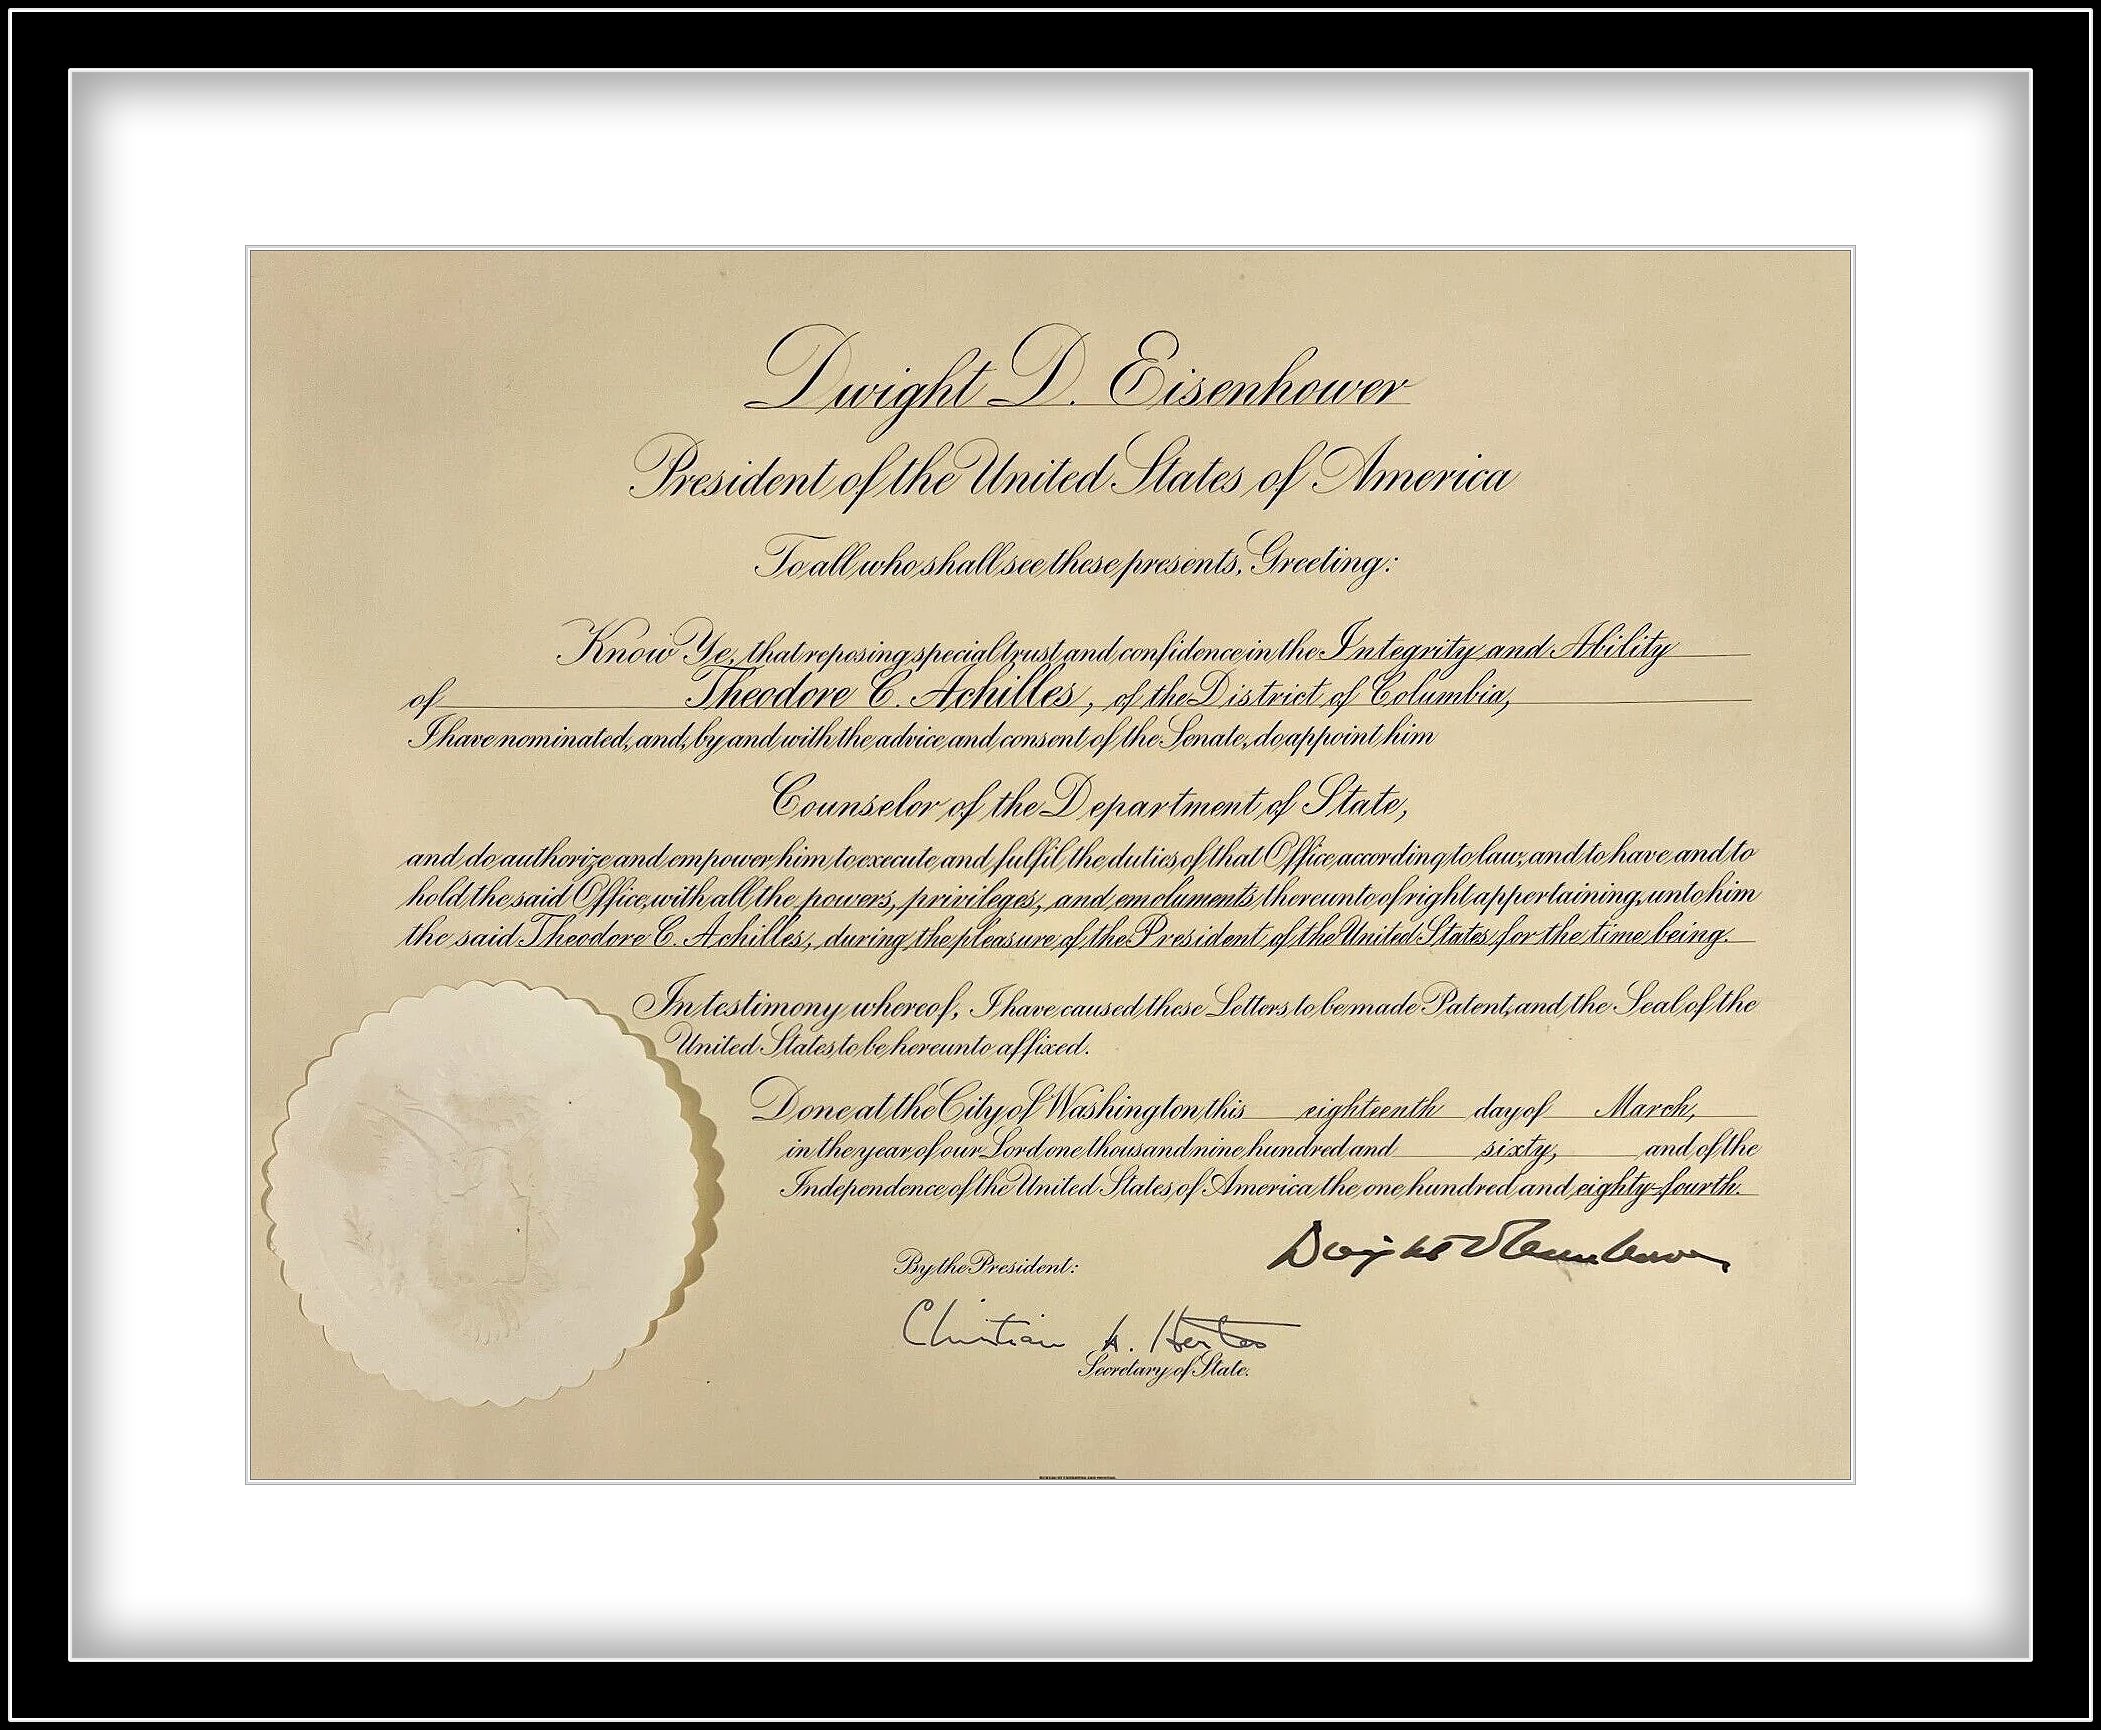 Dwight D. Eisenhower
President of the United States of America
To all who shall see these presents, Greeting:
Know Ye, that reposing special trust and confidence in the Integrity and Ability
of Theodore C. Achilles, of the District of Columbia,
I have nominated, and, by and with the advice and consent of the Senate, do appoint him
Counselor of the Department of State,
and do authorize and empower him to execute and fulfil the duties of that Office according to law, and to have and to
hold the said Office, with all the powers, privileges, and emoluments thereunto of right appertaining, unto him
the said Theodore C. Achilles, during the pleasure of the President of the United States for the time being.
In testimony whereof, I have caused these Letters to be made Patent, and the Seal of the
United States to be hereunto affixed.
Done at the City of Washington this eighteenth day of March,
in the year of our Lord one thousand nine hundred and sixty, and of the
Independence of the United States of America the one hundred and eighty-fourth.
Dwight D Eisenhower
By the President:
Christian A. Herter
Secretary of State.